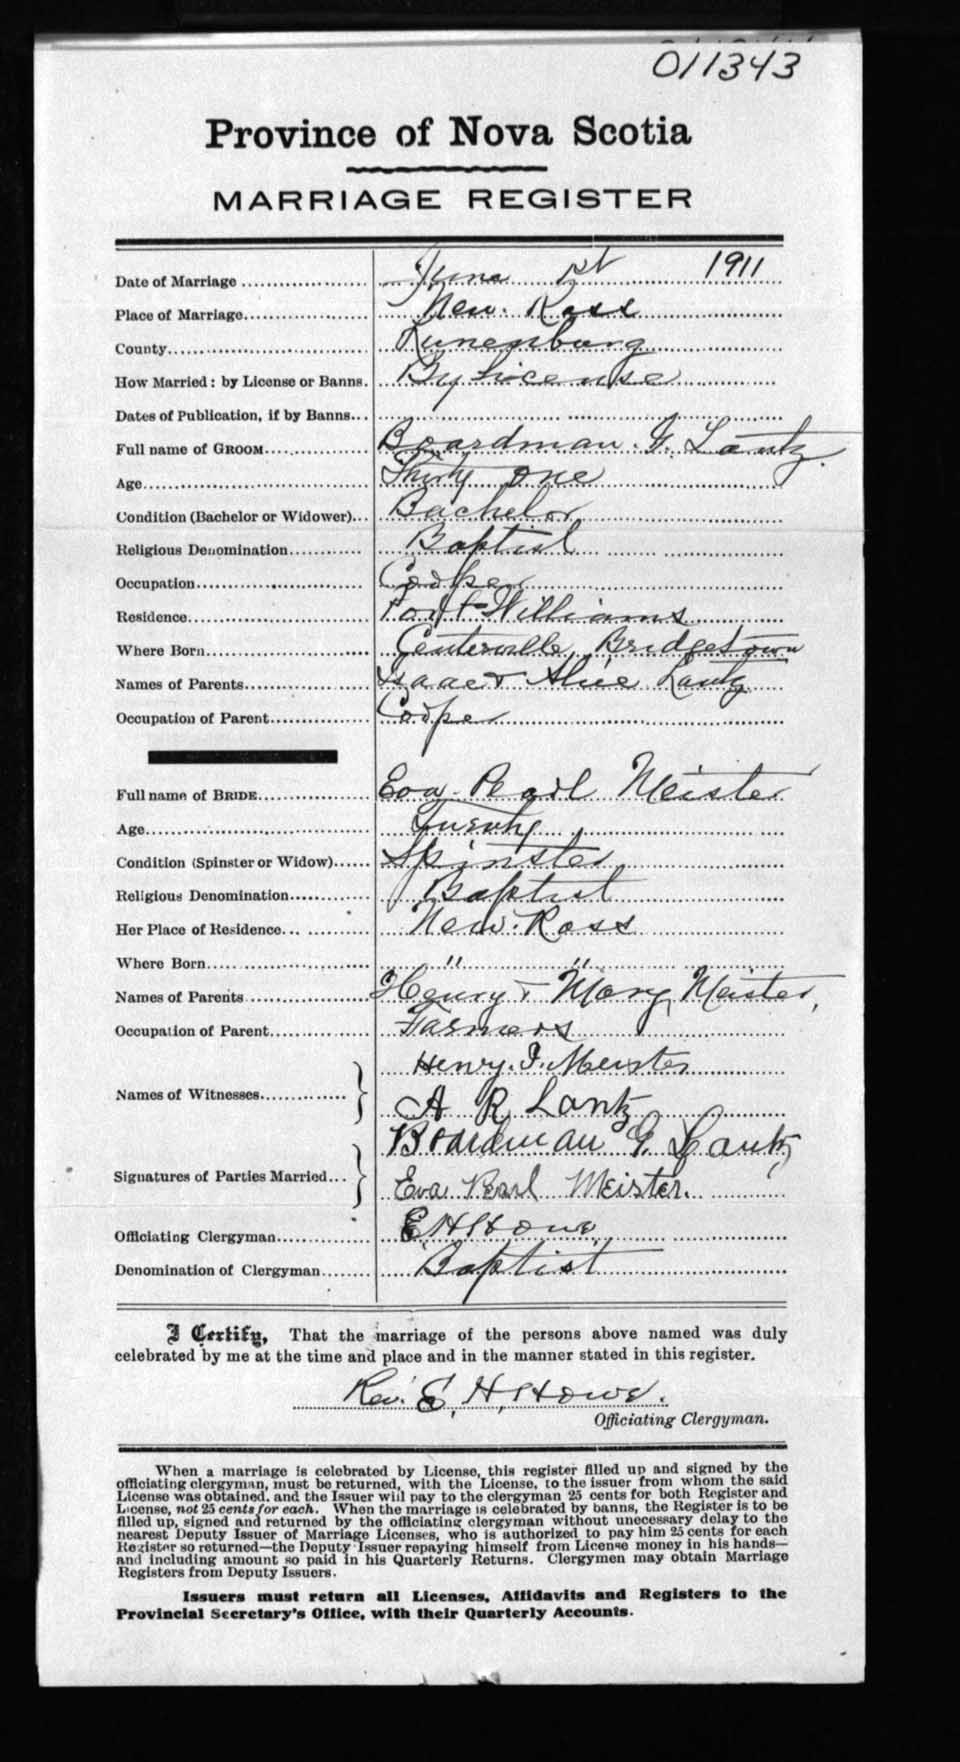 011343
Province of Nova Scotia
MARRIAGE REGISTER
Date of Marriage June 1st 1911
Place of Marriage New. Ross
County Lunenburg
How Married: by License or Banns. By License
Dates of Publication, if by Banns
Full name of GROOM Boardman. G. Lantz.
Age Thirty one
Condition (Bachelor or Widower) Bachelor
Religious Denomination Baptist
Occupation Cooper
Residence Port Williams
Where Born Centerville, Bridgetown
Names of Parents Isaac + Alice Lantz
Occupation of Parent Cooper
Full name of BRIDE Eva Pearl Meister
Age Twenty
Condition (Spinster or Widow) Spinster
Religious Denomination Baptist
Her Place of Residence New. Ross
Where Born " "
Names of Parents Henry + Mary Meister,
Occupation of Parent Farmers
Henry. I. Meister
Names of Witnesses
A R Lantz
Boardman G Lantz
Signatures of Parties Married
Eva Pearl Meister.
Officiating Clergyman E H Howe
Denomination of Clergyman Baptist
I Certify, That the marriage of the persons above named was duly
celebrated by me at the time and place and in the manner stated in this register.
Rev. E. H. Howe.
Officiating Clergyman.
When a marriage is celebrated by License, this register filled up and signed by the
officiating clergyman, must be returned, with the License, to the issuer from whom the said
License was obtained, and the Issuer will pay to the clergyman 25 cents for both Register and
License, not 25 cents for each. When the marriage is celebrated by banns, the Register is to be
filled up, signed and returned by the officiating clergyman without unecessary delay to the
nearest Deputy Issuer of Marriage Licenses, who is authorized to pay him 25 cents for each
Register so returned—the Deputy Issuer repaying himself from License money in his hands—
and including amount so paid in his Quarterly Returns. Clergymen may obtain Marriage
Registers from Deputy Issuers.
Issuers must return all Licenses, Affidavits and Registers to the
Provincial Secretary's Office, with their Quarterly Accounts.